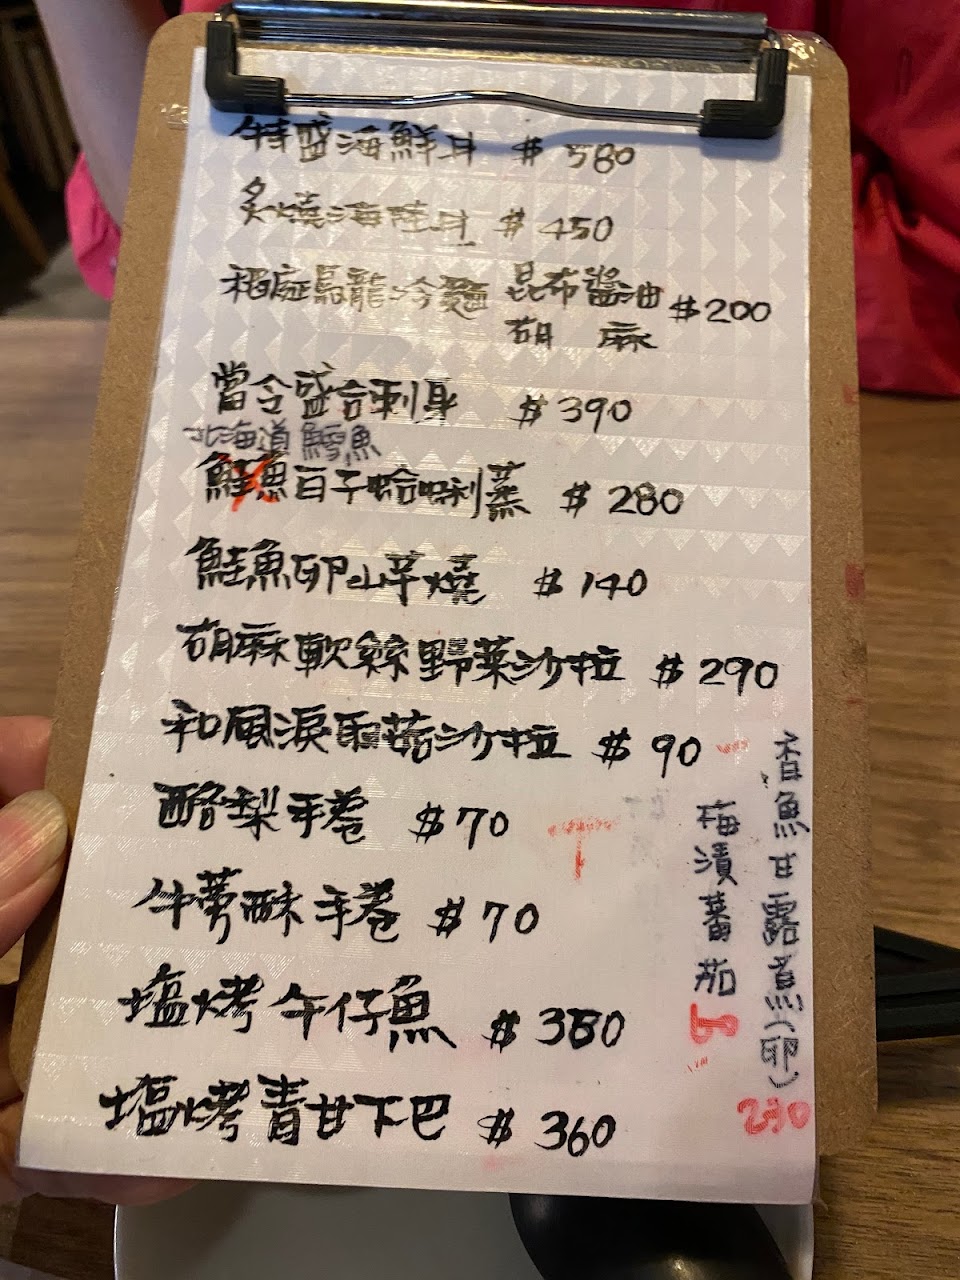 特盛海鮮丼 $580
炙燒海鮭丼 $450
稻庭烏龍冷麵 昆布醬油 $200
胡麻
當令盛合刺身 $390
北海道鱈魚
鮭魚百子蛤蜊蒸 $280
鮭魚卵山芋燒 $140
胡麻軟絲野菜沙拉 $290
和風淚取茄沙拉 $90
酪梨手卷 $70
牛蒡酥手卷 $70
塩烤午仔魚 $380
塩烤青甘下巴 $360
梅漬蕃茄
香魚甘露煮(卵)
230